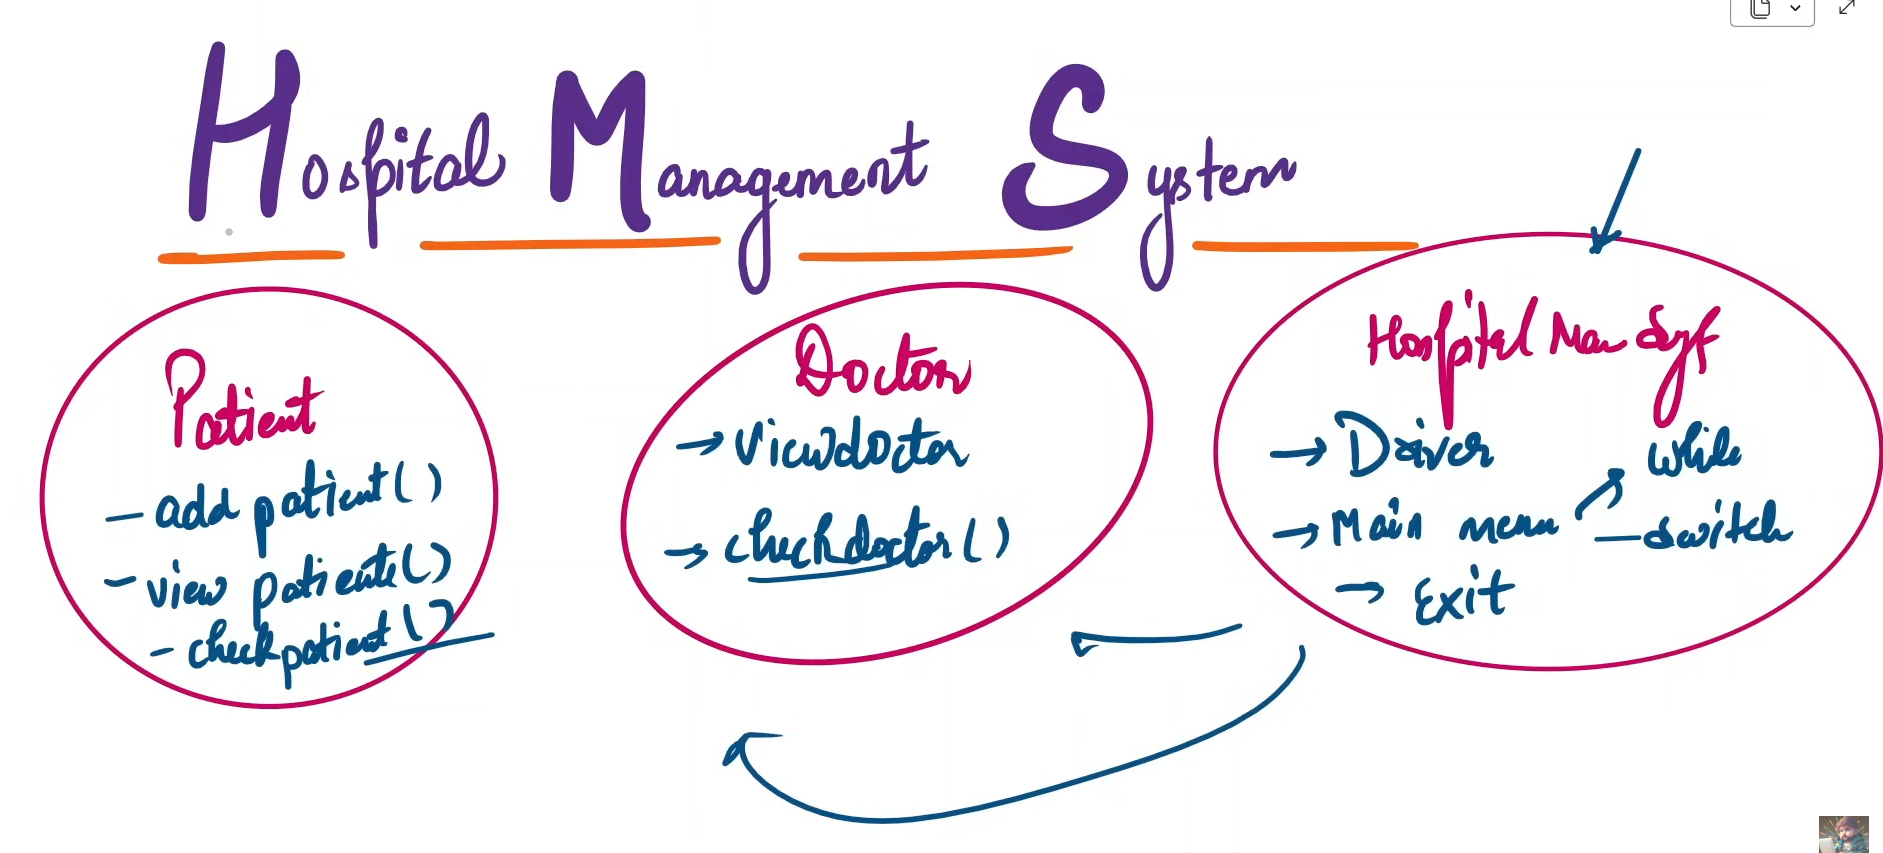 Hospital Management System
Patient
- add patient()
- view patients()
- checkpatient()
Doctor
→ viewdoctor
→ checkdoctor()
Hospital Man Sys
→ Driver
→ Main menu
while
- switch
→ Exit